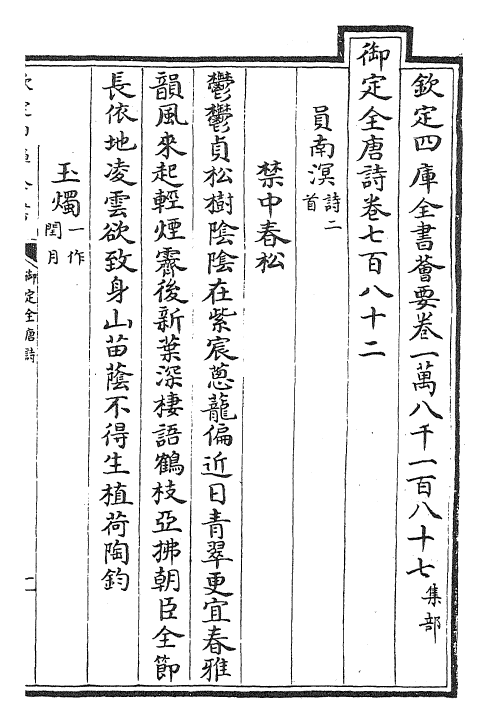 欽定四庫全書薈要卷一萬八千一百八十七集部
御定全唐詩卷七百八十二
員南溟詩二首
禁中春松
鬱鬱貞松樹陰陰在紫宸蔥蘢偏近日青翠更宜春雅
韻風來起輕煙霽後新葉深棲語鶴枝亞拂朝臣全節
長依地凌雲欲致身山苗蔭不得生植荷陶鈞
玉燭一作閏月
御定全唐詩